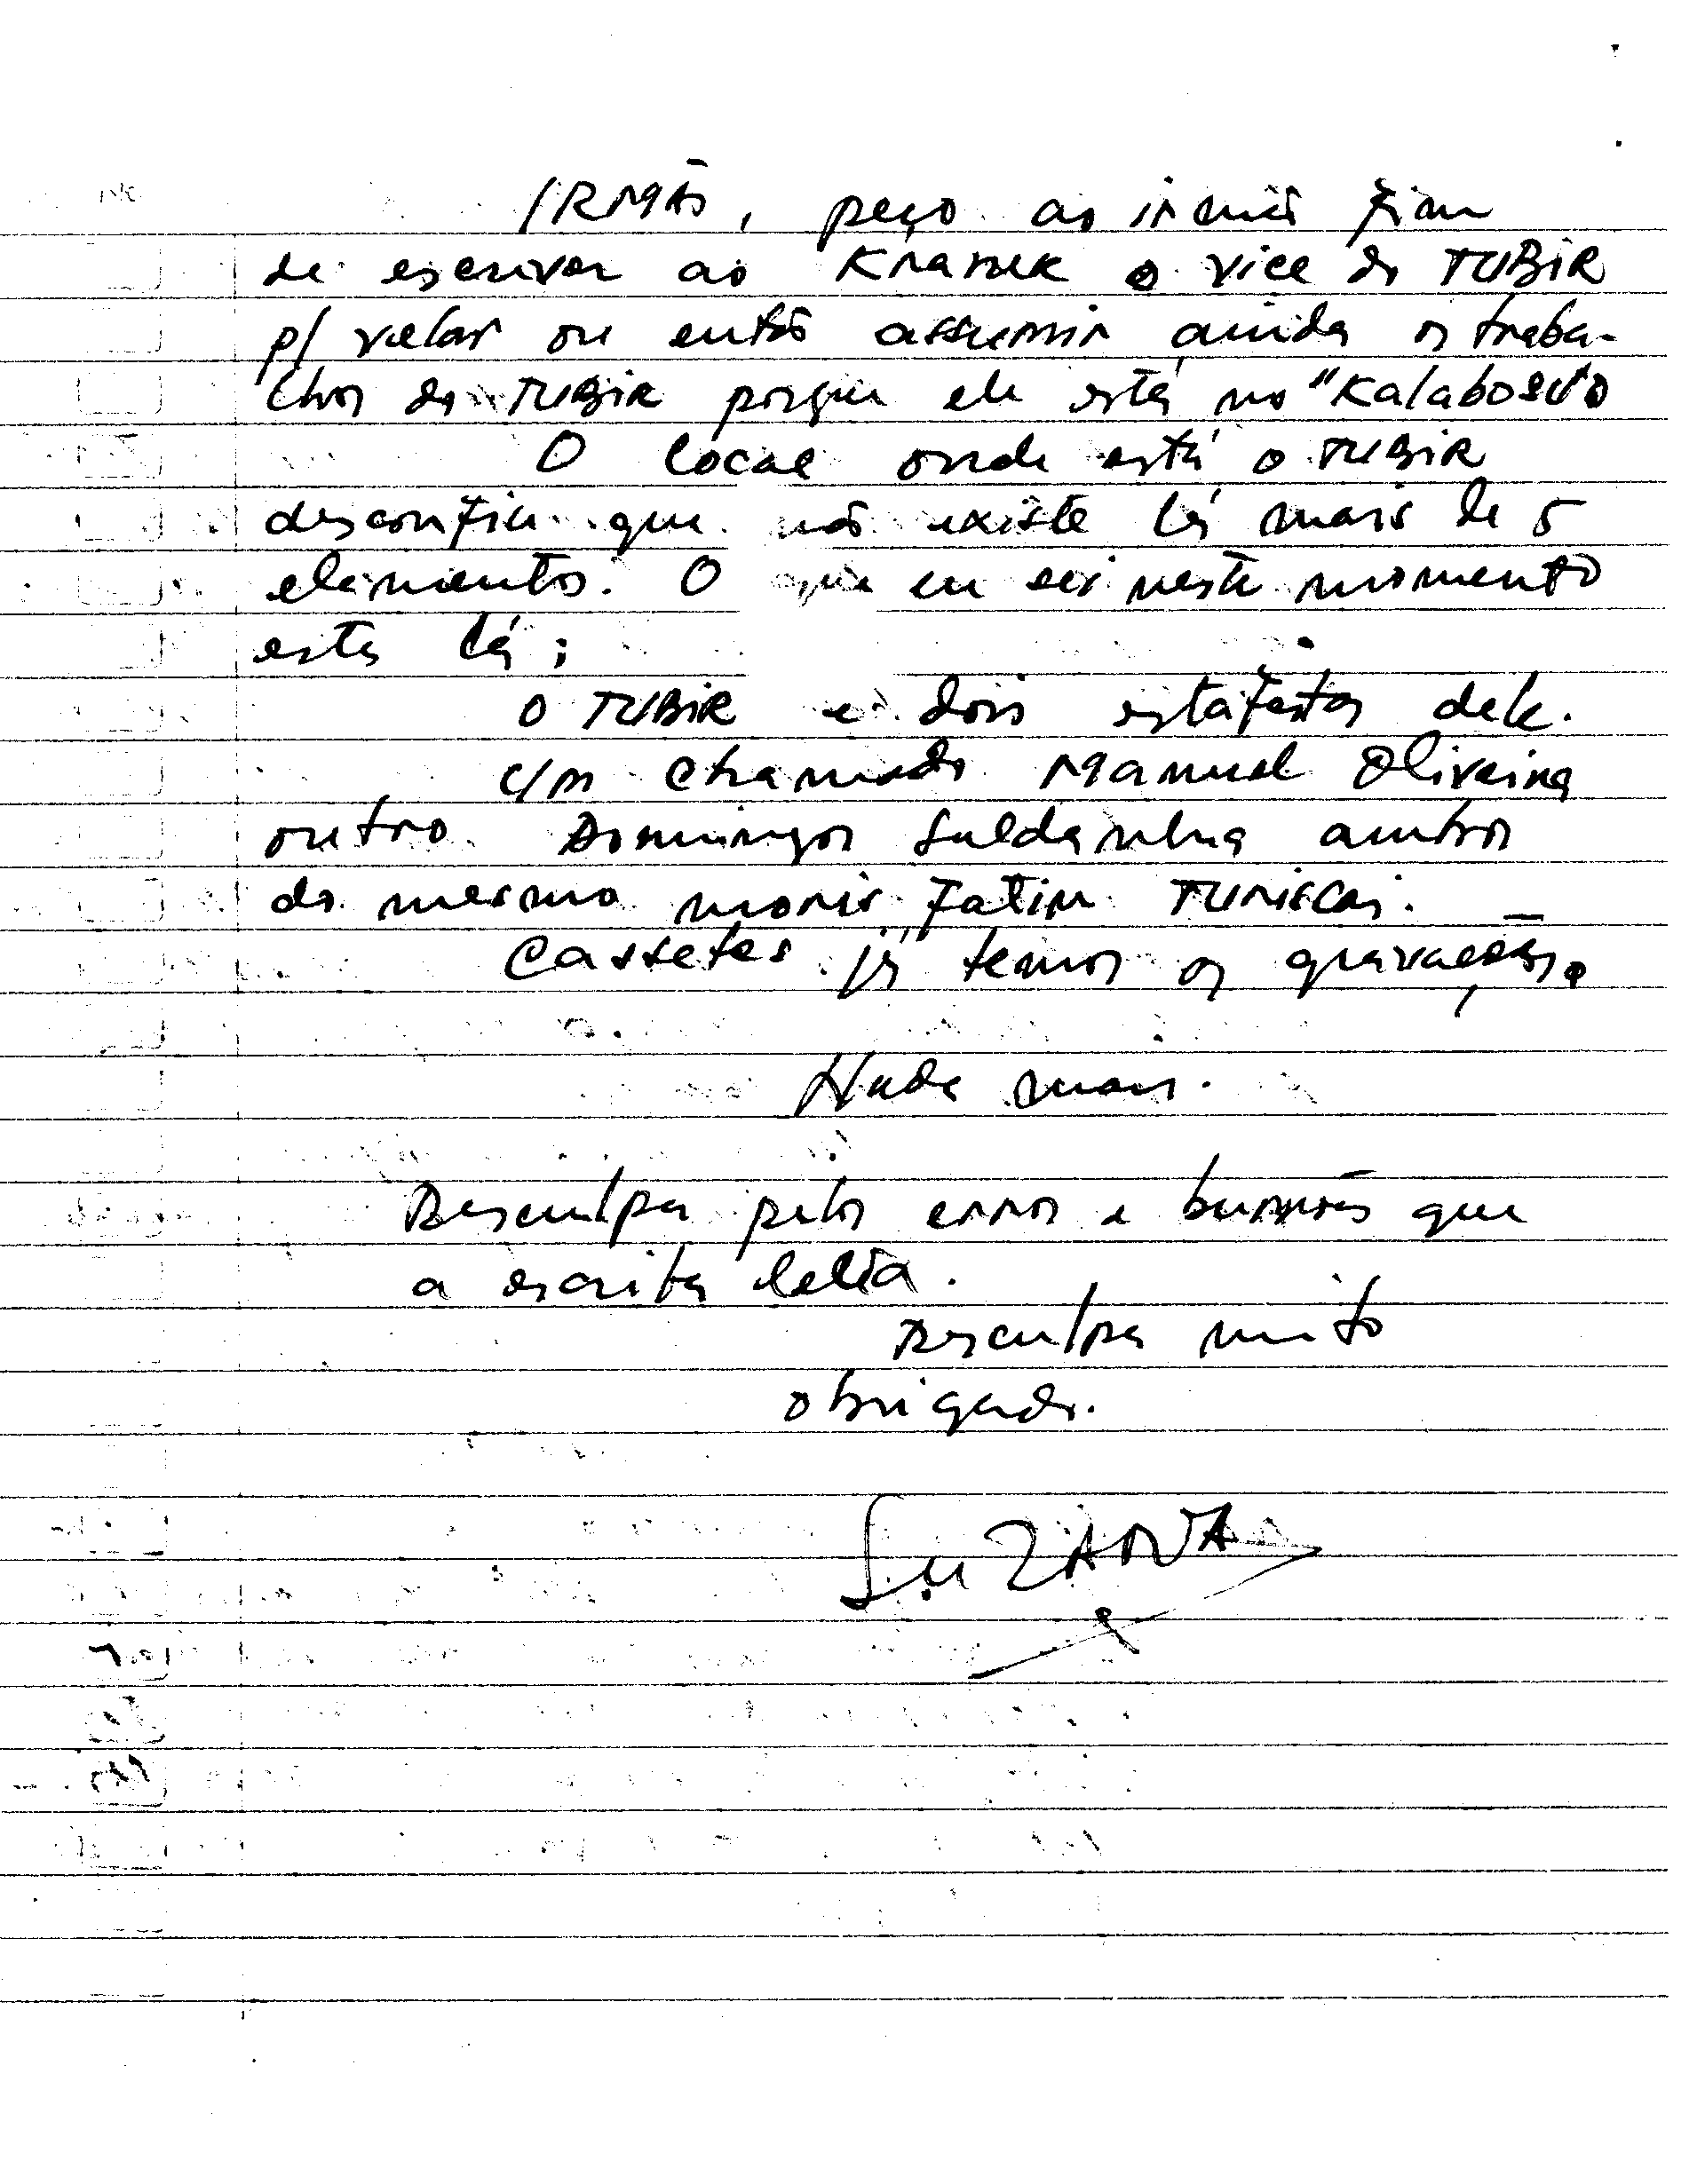 IRMÃO, peço ao irmão fim
de escrever ao Kranuk o vice do TUBIR
p/ velar ou então assumir ainda os traba-
lhos do TUBIR porque ele está no "Kalaboso"
O local onde está o TUBIR
desconfiu que não existe lá mais de 5
elementos. O que eu sei neste momento
esta lá;
O TUBIR e dois estafetas dele.
Um chamado Manuel Oliveira
outro Domingos Saldanha ambos
do mesmo moris fatin TURISCAI.
Cassetes já temos as gravações.
Nada mais.
Desculpa pelos erros e borrões que
a escrita
Desculpa muito
obrigado.
SuZANA